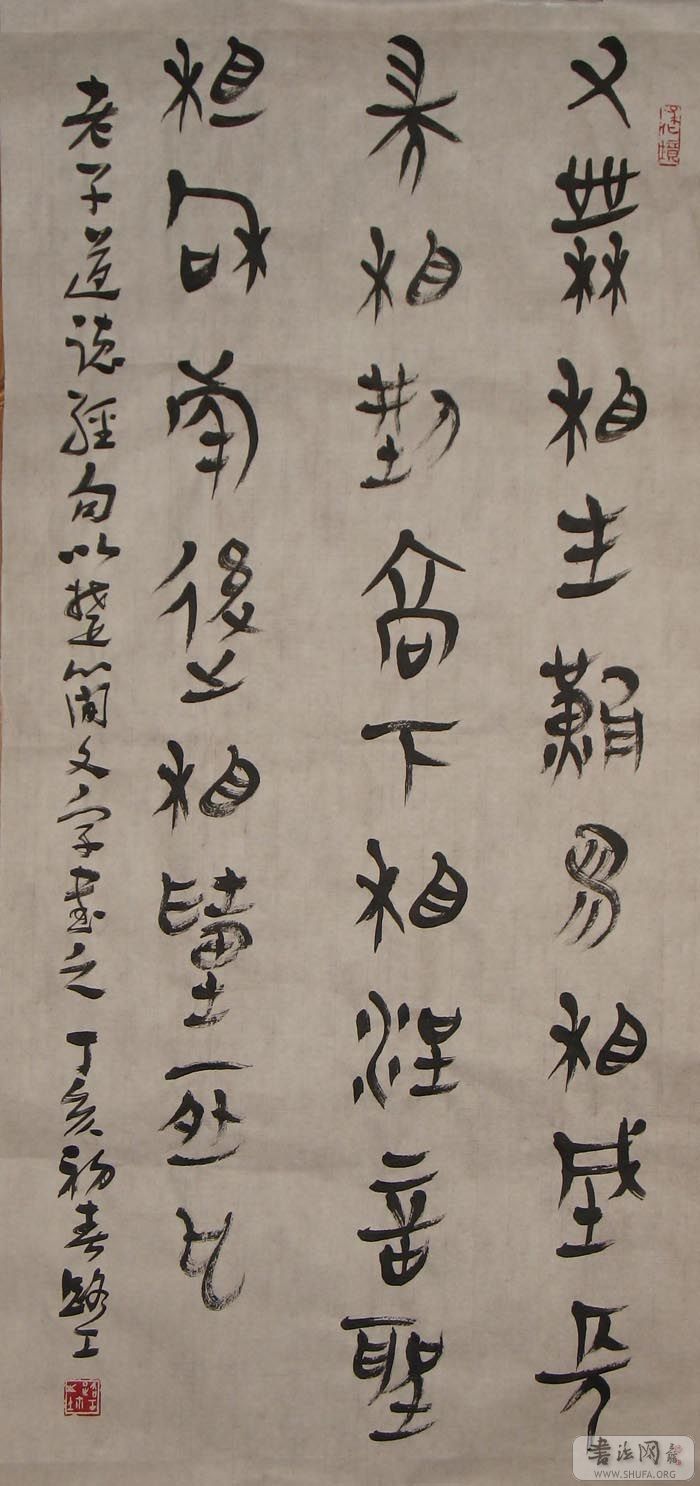 又無相生難易相成長
短相型高下相浧音聖
相和前後相墮亙也
老子道德經句以楚簡文字書之 丁亥初春路工
書法网
WWW.SHUFA.ORG